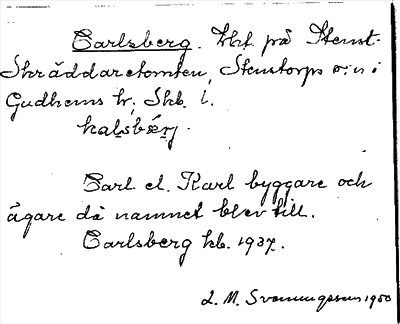 Carlsberg. Lht på Stenst.
Skräddaretomten, Stenstorps s:n i
Gudhems hr, Skb. l.
kalsbærj.
Carl el. Karl byggare och
ägare då namnet blev till.
Carlsberg kb. 1937.
L. M. Svenungsson 1950